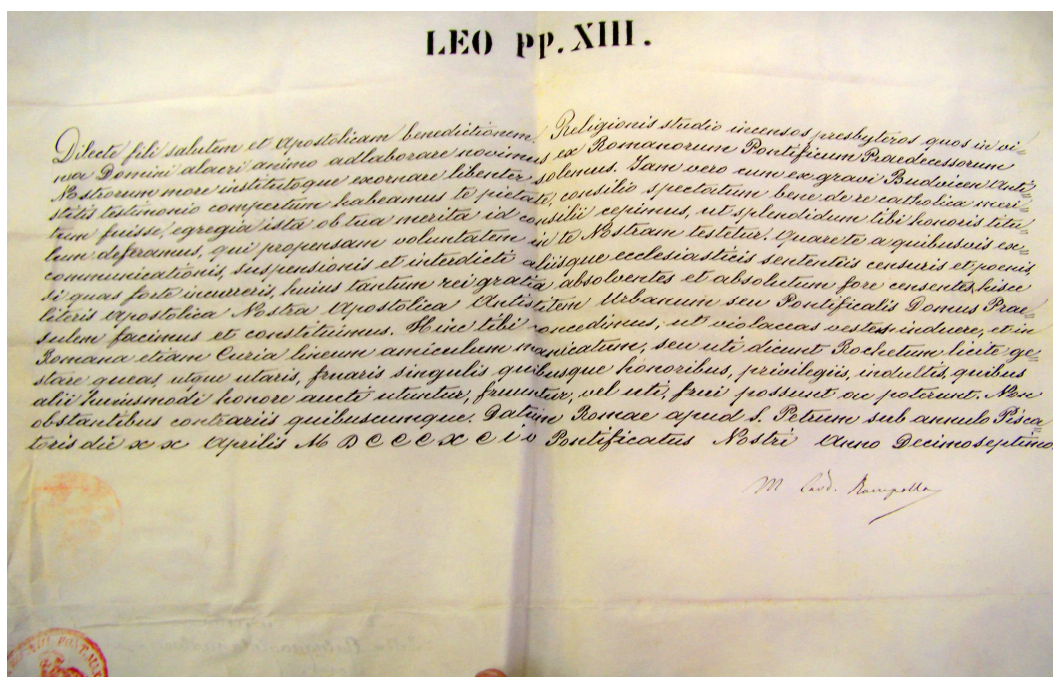 LEO PP. XIII.
Dilecte fili salutem et Apostolicam benedictionem. Religionis studio incensos presbyteros quos in vi=
nea Domini alacri animo adlaborare novimus ex Romanorum Pontificum Praedecessorum
Nostrorum more institutoque exornare libenter solemus. Iam vero cum ex gravi Budvicen Anti=
stitis testimonio compertum habeamus te pietate, consilio spectatum bene de re catholica meri=
tum fuisse, egregia ista ob tua merita id consilii cepimus, ut splendidum tibi honoris titu=
lum deferamus, qui propensam voluntatem in te Nostram testetur. Quare te a quibusvis ex=
communicationis, suspensionis et interdicti aliisque ecclesiasticis sententiis censuris et poenis,
si quas forte incurreris, huius tantum rei gratia absolventes et absolutum fore censentes, hisce
literis Apostolica Nostra Apostolica Antistitem Urbanum seu Pontificalis Domus Prae=
sulem facimus et constituimus. Hinc tibi concedimus, ut violaceas vestes induere, et in
Romana etiam Curia lineum amiculum manicatum, seu uti dicunt Rochetum licite ge=
stare queas, utque utaris, fruaris singulis quibusque honoribus, privilegiis, indultis, quibus
alii huiusmodi honore aucti utuntur, fruuntur, vel uti, frui possunt ac poterunt. Non
obstantibus contrariis quibuscumque. Datum Romae apud S. Petrum sub annulo Pisca=
toris die xx Aprilis MDCCCXCIV Pontificatus Nostri Anno Decimoseptimo.
M. Card. Rampolla
XIII PONT. MAX